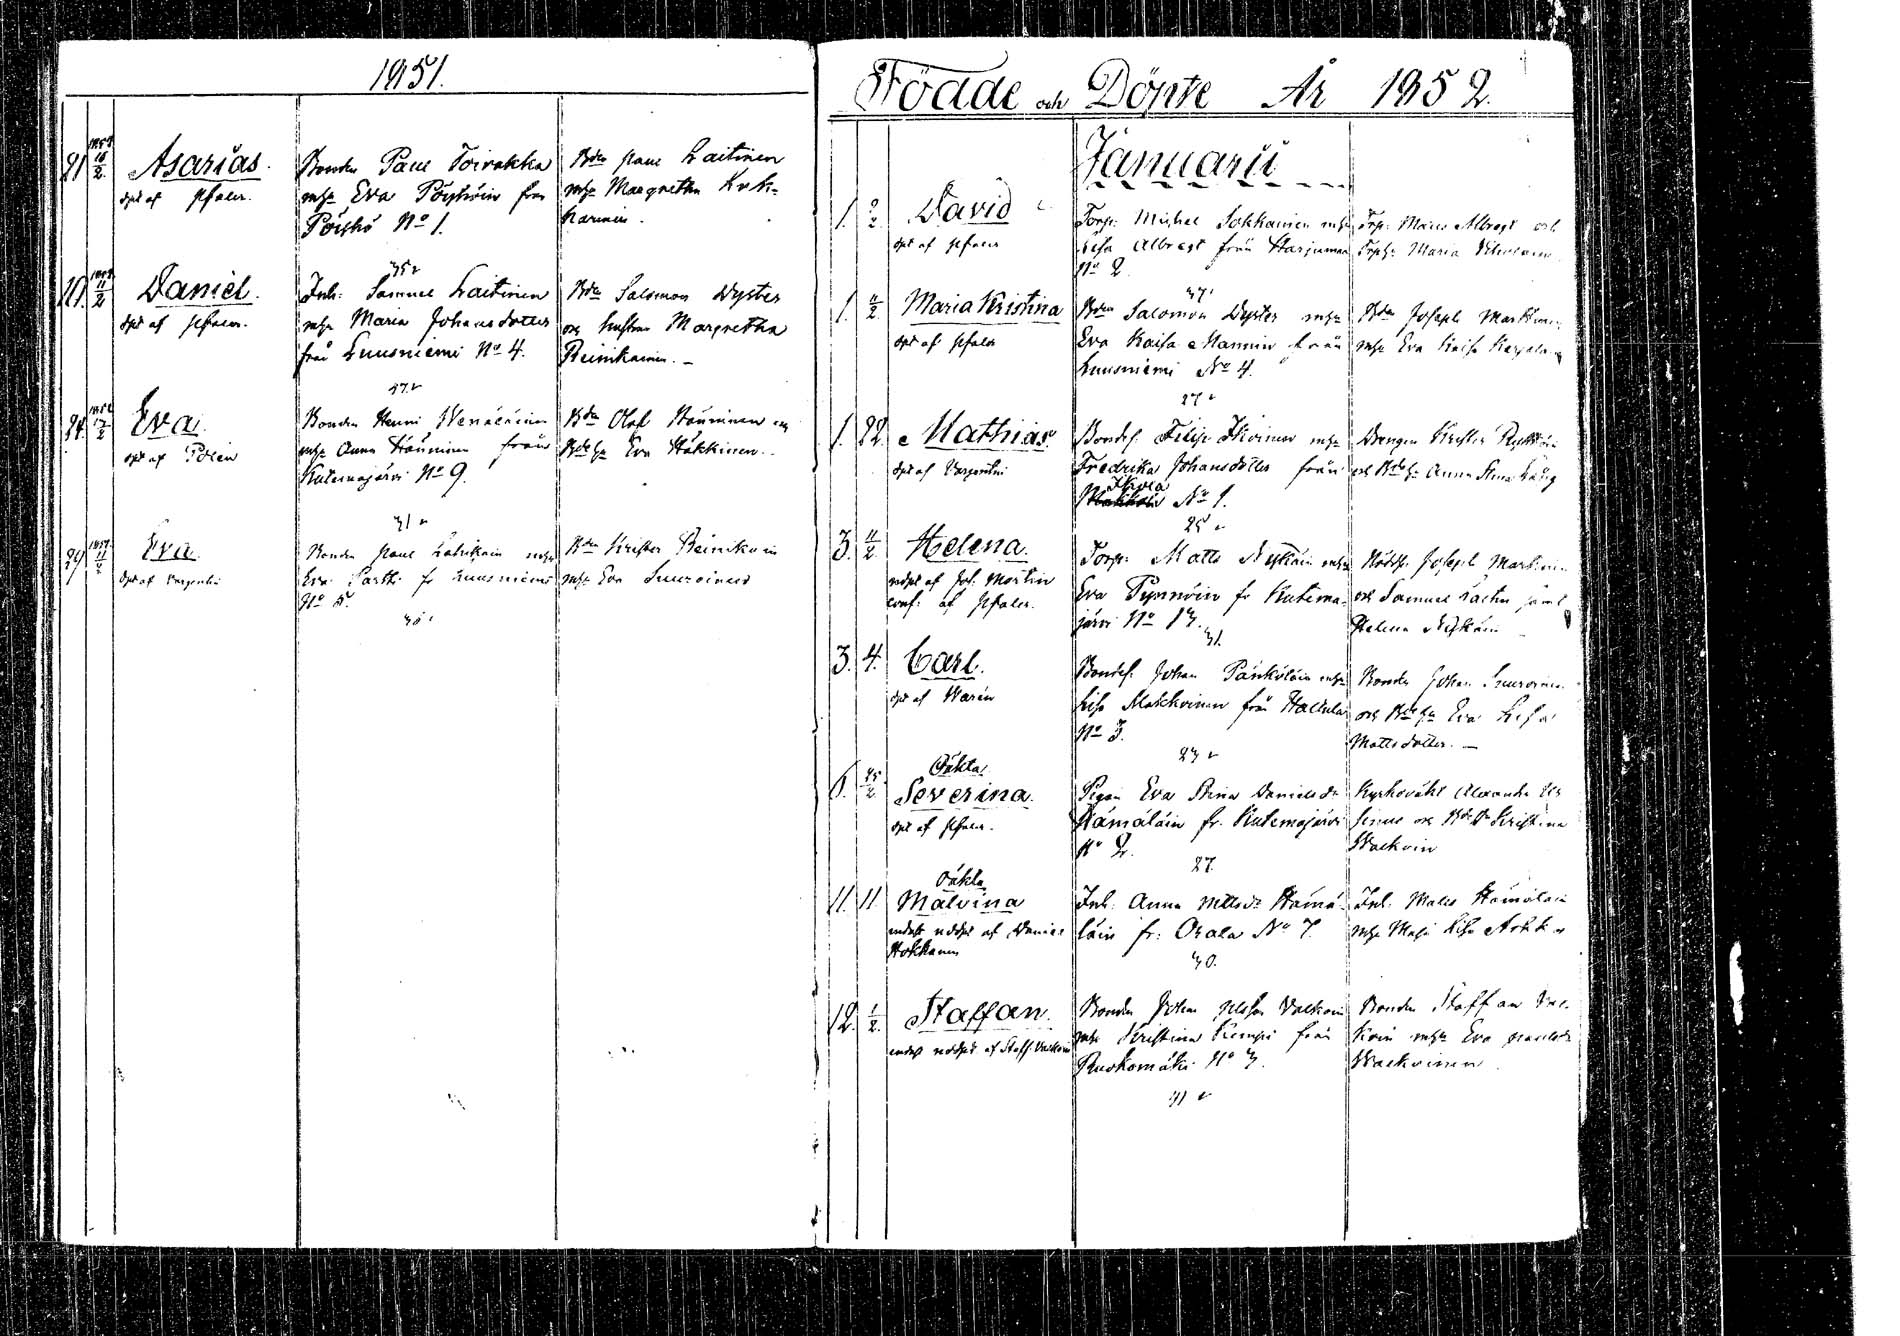 1851.
21 1852 10/2 Asarias.
döpt af Pfaler.
Bonden Paul Toivakka
mhu Eva Pöyhöin från
Pöyhö No 1.
35
Bden Paul Laitinen
mhu Margretha Kuk-
karinen.
1852 11/2 Daniel.
döpt af Pfaler.
Inh: Samuel Laitinen
mhu Maria Johansdotter
från Luusniemi No 4.
47
Bden Salomon Dyster
och hustru Margretha
Reinikainen. —
24. 1852 12/2 Eva.
döpt af Polén
Bonden Henric Wenäläinen
mhu Anna Häyninen från
Kutemajärvi No 9.
31
Bden Olof Häyninen och
Bdehu Eva Häkkinen.
29 1852 11/2 Eva.
döpt af Argentin
Bonden Paul Lahikain mhu
Eva Partti fr Luusniemi
No 5.
Bden Krister Reinikain
mhu Eva Suuroinen
Födde och Döpte År 1852.
Januarii
1. 2/2 David
döpt af Pfaler
Torp: Michel Sokkainen mhu
Lisa Albregt från Harjumaa
No 2.
47
Torp: Mats Albregt och
Torphu Maria
1. 11/2 Maria Kristina
döpt af Pfaler
Bden Salomon Dyster mhu
Eva Kaisa Mannin från
Luusniemi No 4.
27
Bden Joseph Markkanen
mhu Eva Kaisa Karjalain
1. 22. Mathias.
döpt af Argentin
Bondes: Filip Ikoinen mhu
Fredrika Johansdotter från
Ikola No 1.
25
Drengen Krister
och Bdehu Anna Stina Lång
3. 11/2 Helena.
nödpt af Joh. Martin
conf: af Pfaler.
Torp: Matts Nykäin mhu
Eva Pynnöin fr Kutema-
järvi No 17.
31.
Joseph Markain
och Samuel jämt
Helena Nykäin
3. 4. Carl.
döpt af Warén
Bondes: Johan Pänkäläin mhu
Lisa Makkoinen från Hallula
No 3.
23
Bonden Johan Suuroinen
och Bdehu Eva Lisa
Mattsdotter. —
6. 25/2 Oäkta
Severina.
döpt af Pfaler.
Pigan Eva Stina Danielsdr
Hämäläin fr. Kutemajärvi
No 2.
27.
Kyrkoväkt Alexander
och Kristina
Walkoin
11. 11 Oäkta
Malvina
endast nödpt af Daniel
Hokkanen
Inh: Anna Mattsdr Hämä-
läin fr: Orala No 7.
30.
Inh: Matts Hämäläin
mhu Maja Lisa
12. 1/2 Staffan.
endast nödpt af Staff. Valkoin
Bonden Johan Valkoin
mhu Kristina Kemppi från
Ruokomäki No 3.
31
Bonden Staffan Val-
koin mhu Eva Paulsdr
Walkoinen